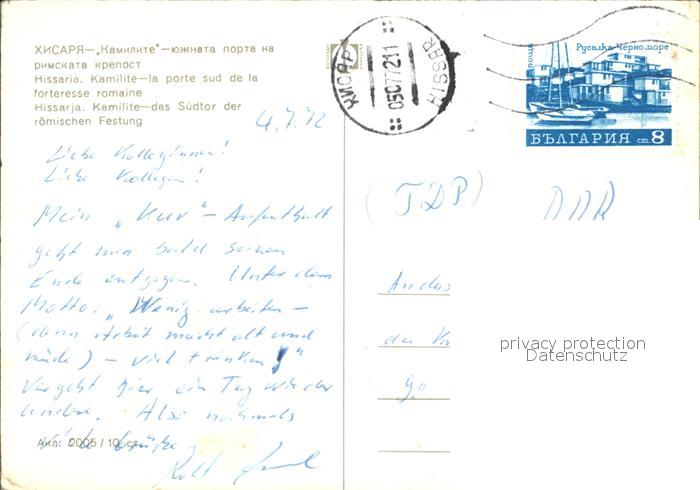 ХИСАРЯ—„Камилите"—южната порта на
римската крепост
Hissaria. Kamilité—la porte sud de la
forteresse romaine
Hissarja. Kamilite—das Südtor der
römischen Festung
4.7.72
Liebe Kolleginnen!
Liebe Kollegen!
Mein „Kur"-Aufenthalt
geht nun bald seinem
Ende entgegen. Unter dem
Motto: „Wenig arbeiten –
(denn Arbeit macht alt und
müde) – viel trinken!"
vergeht hier ein Tag wie der
andere. Also nochmals
Grüße
Акл. 2005 / 10 ст.
Rolf
ХИСАР
050772 11
HISSAR
поща
Русалка Черно море
БЪЛГАРИЯ ст 8
(ГДР)
An das
privacy protection
Datenschutz